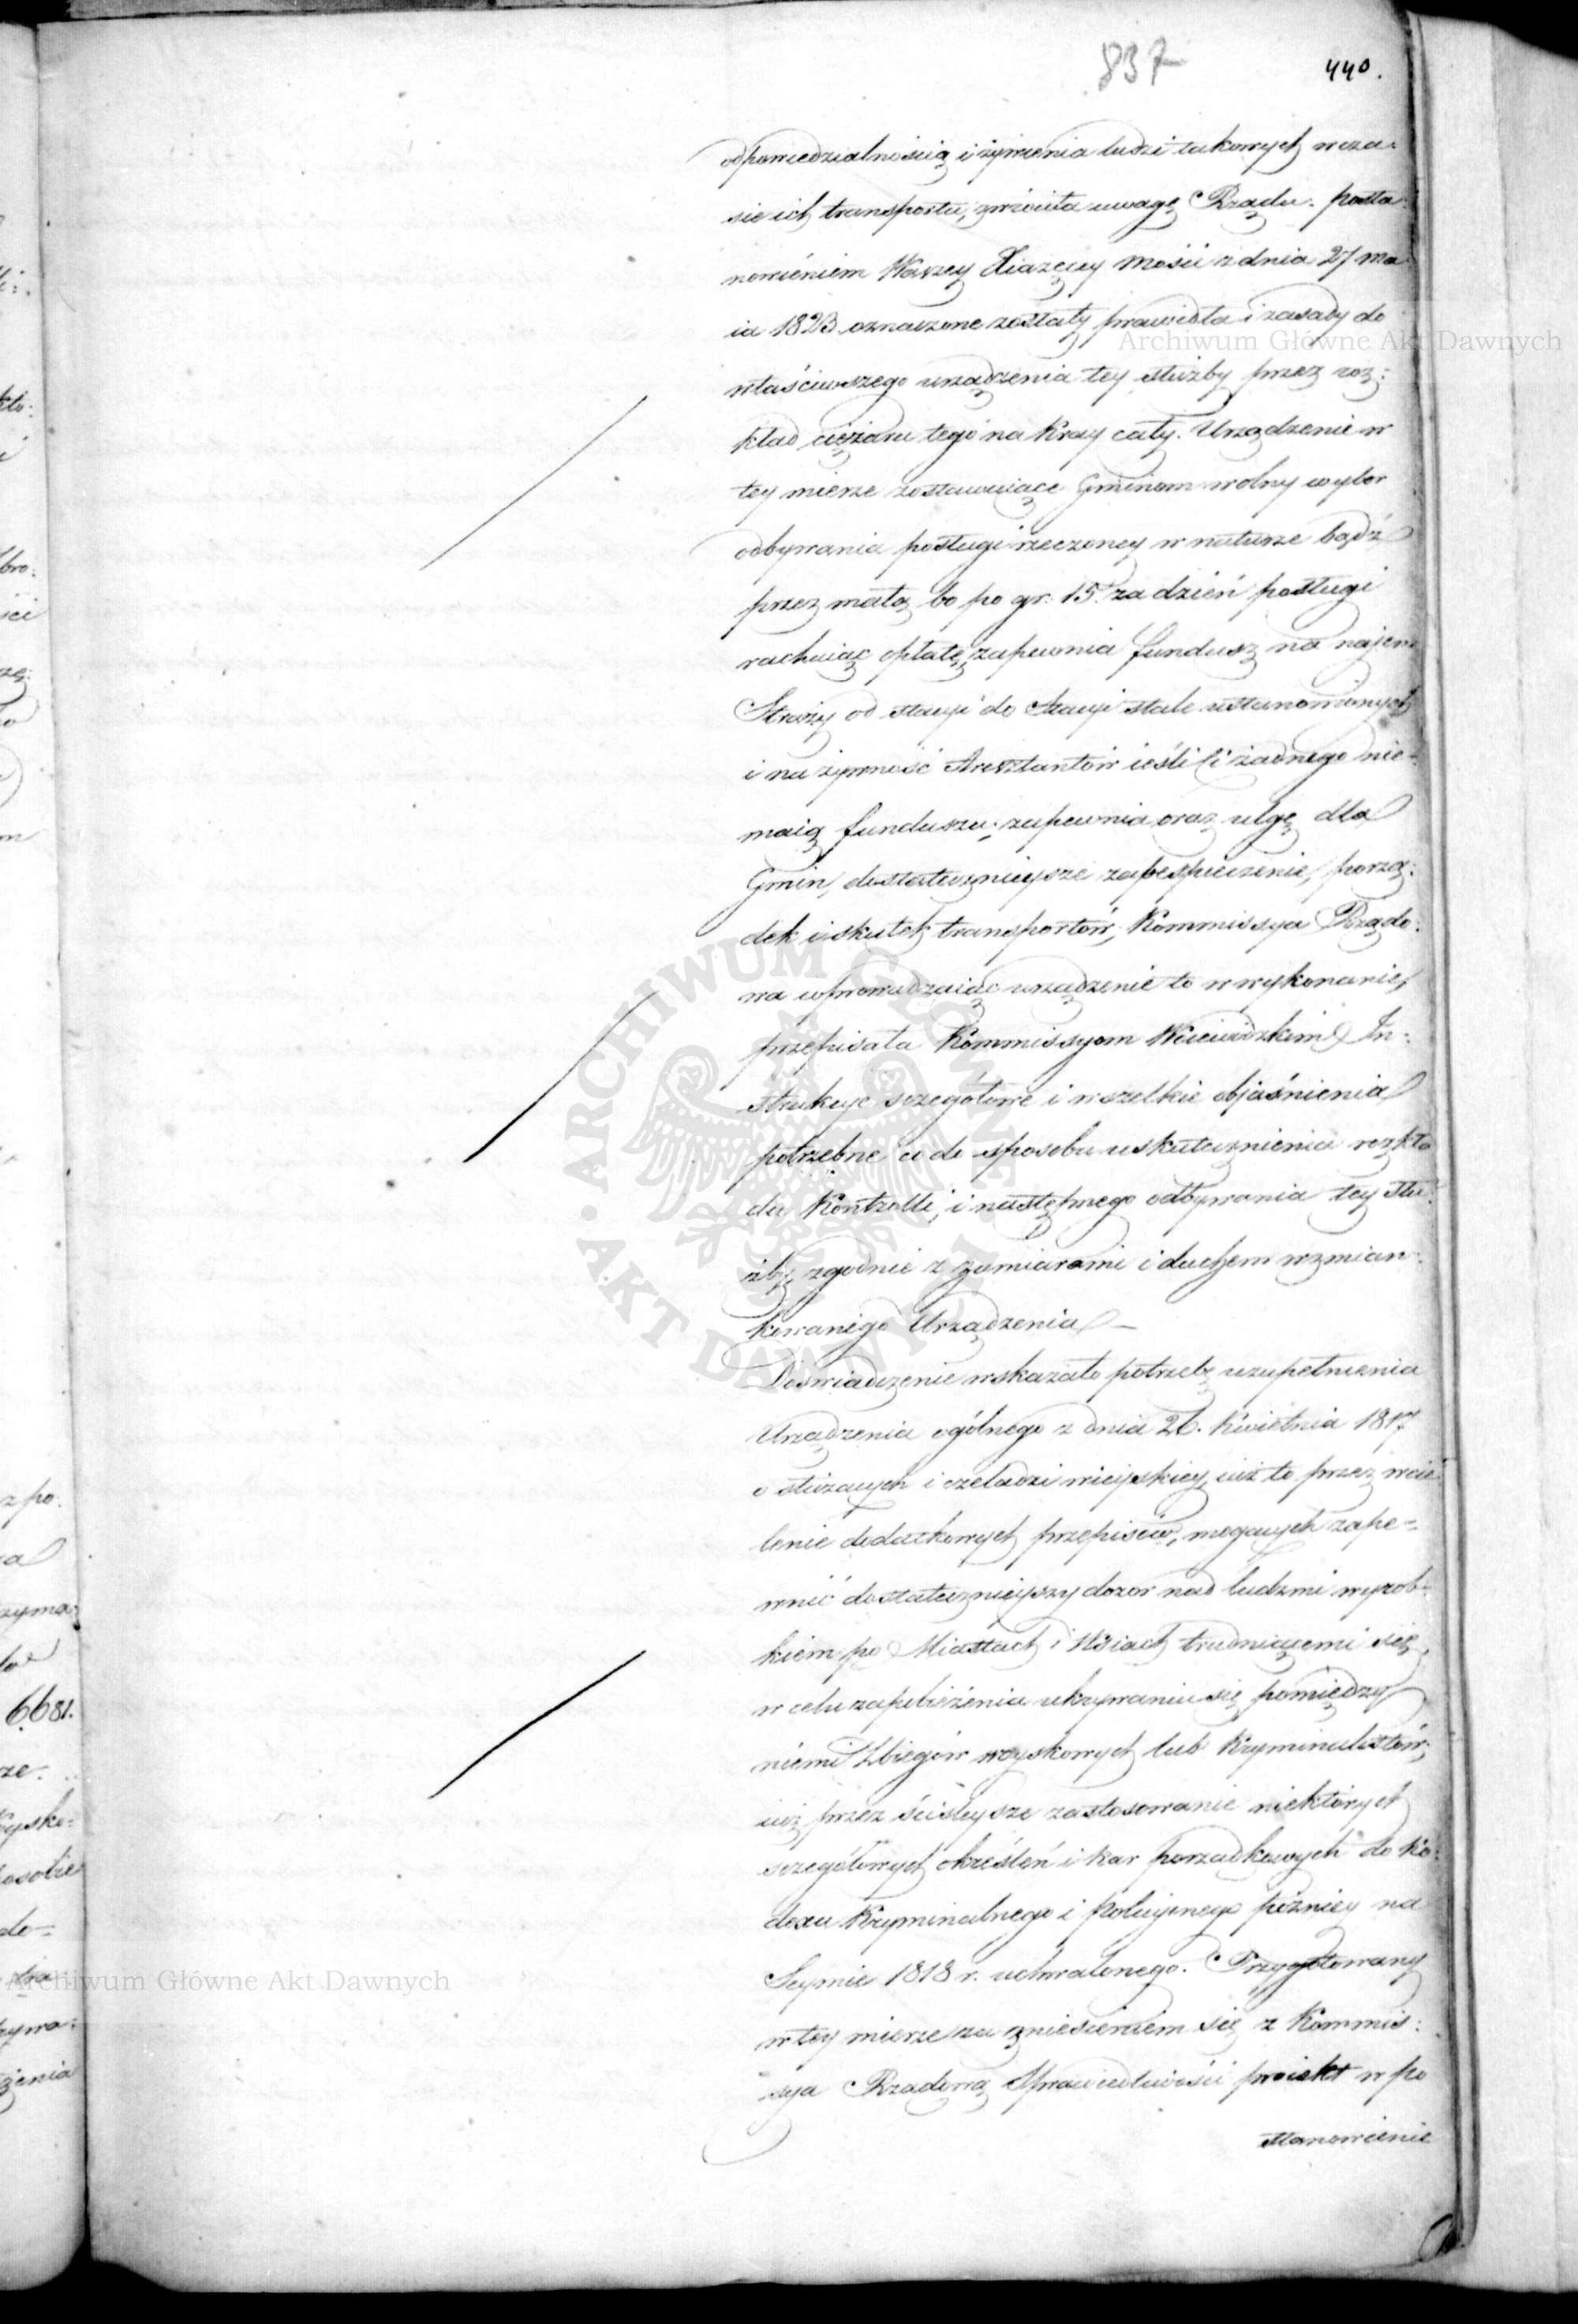 837
440.
odpowiedzialnością i żywienia ludzi takowych w cza:
sie ich transportu, zwróciła uwagę Rządu. Posta:
nowieniem Waszey Xiążęcey Mości z dnia 27 ma
ia 1823 oznaczone zostały prawidła i zasady do
właściwszego urządzenia tey służby przez roz:
kład ciężaru tego na Kray cały. Urządzenie w
tey mierze zostawuiące Gminom wolny wybor
odbywania posługi rzeczoney w naturze bądź
przez małą bo po gr: 15. za dzień posługi
rachuiąc opłatę, zapewnia fundusz na najem
Straży od stacyi do stacyi stale ustanowionych
i na żywność Aresztantów ieśli ci żadnego nie-
maią funduszu; zapewnia oraz ulgę dla
Gmin, dostatecznieysze zabespieczenie, porzą:
dek i skutek transportów; Kommissya Rządo:
wa wprowadzaiąc urządzenie to w wykonanie,
przepisała Kommissyom Woiewódzkim In:
strukcye szczegółowe i wszelkie objaśnienia
potrzebne co do sposobu uskutecznienia rozkła
du Kontrolli, i następnego odbywania tey słu:
żby zgodnie z zamiarami i duchem wzmian:
kowanego Urządzenia —
Doświadczenie wskazało potrzebę uzupełnienia
Urządzenia ogólnego z dnia 26. Kwietnia 1817
o służących i czeladzi wieyskiey, iuż to przez wcie
lenie dodatkowych przepisów, mogących zape=
wnić dostatecznieyszy dozor nad ludźmi wyrob-
kiem po Miastach i Wsiach trudniącemi się,
w celu zapobieżenia ukrywaniu się pomiędzy
niemi Zbiegów woyskowych lub Kryminalistów;
iuż przez ścisleysze zastosowanie niektórych
szczegółowych określeń i kar porządkowych do Ko:
dexu Kryminalnego i Policyjnego pózniey na
Seymie 1818 r. uchwalonego. Przygotowany
w tey mierze za zniesieniem się z Kommis:
syą Rządową Sprawiedliwości proiekt w po
stanowienie
6681.
Archiwum Główne Akt Dawnych
Archiwum Główne Akt Dawnych
ARCHIWUM GŁÓWNE AKT DAWNYCH